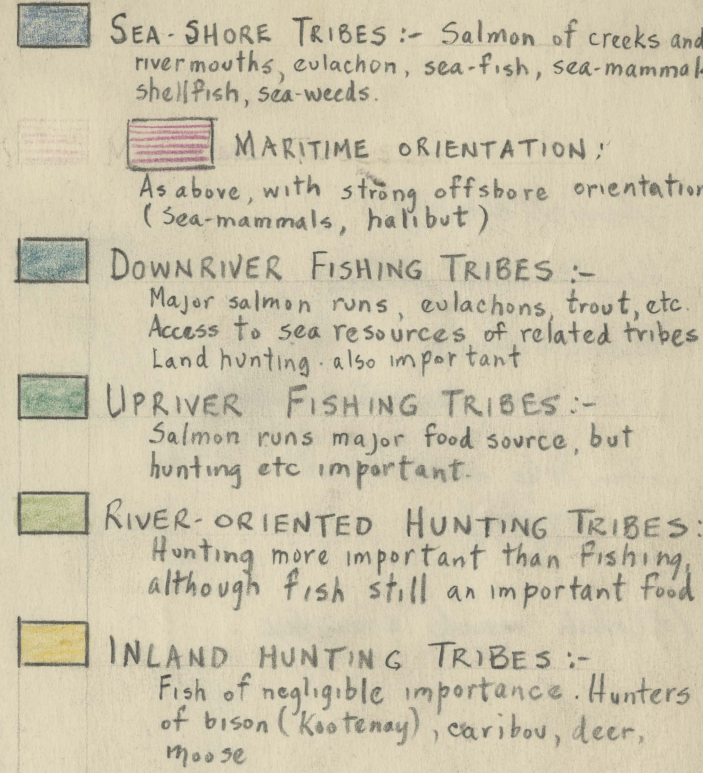 SEA-SHORE TRIBES :- Salmon of creeks and
river mouths, eulachon, sea-fish, sea-mammal
shellfish, sea-weeds.
MARITIME ORIENTATION:
As above, with strong offshore orientation
(Sea-mammals, halibut)
DOWNRIVER FISHING TRIBES :-
Major salmon runs, eulachons, trout, etc.
Access to sea resources of related tribes
Land hunting also important
UPRIVER FISHING TRIBES :-
Salmon runs major food source, but
hunting etc important.
RIVER-ORIENTED HUNTING TRIBES:
Hunting more important than fishing,
although fish still an important food
INLAND HUNTING TRIBES :-
Fish of negligible importance. Hunters
of bison (Kootenay), caribou, deer,
moose